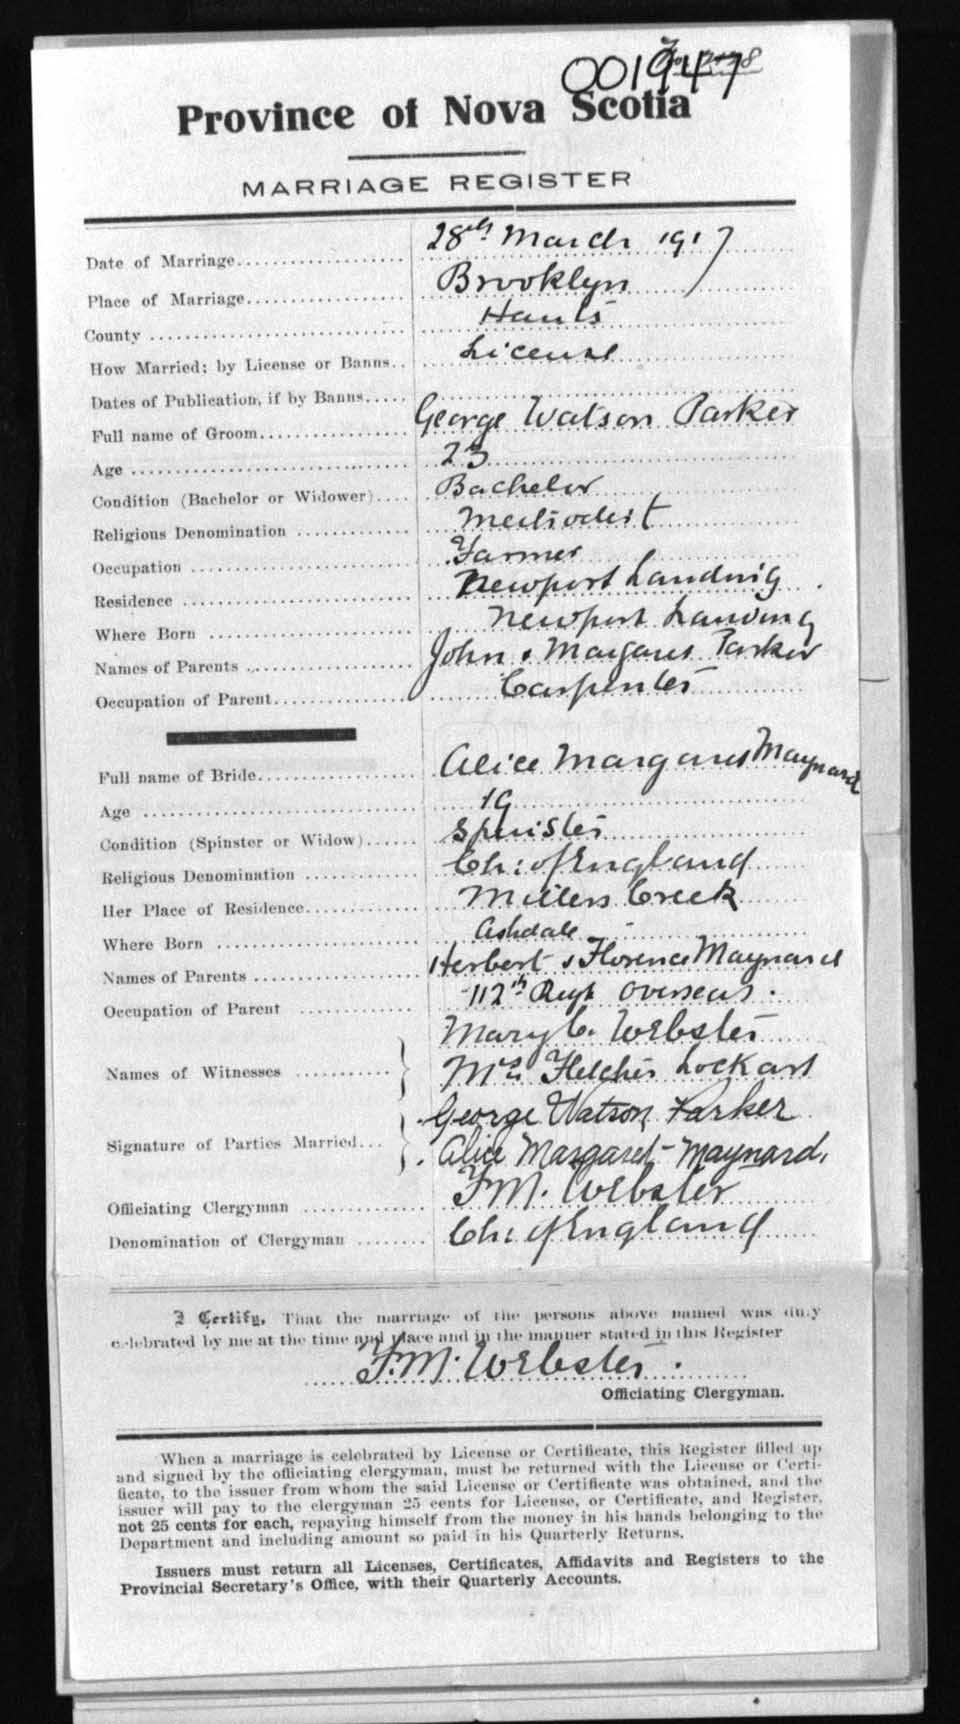 001947
Province of Nova Scotia
MARRIAGE REGISTER
Date of Marriage 28th March 1917
Place of Marriage Brooklyn
County Hants
How Married: by License or Banns License
Dates of Publication, if by Banns
Full name of Groom George Watson Parker
Age 23
Condition (Bachelor or Widower) Bachelor
Religious Denomination Methodist
Occupation Farmer
Residence Newport Landing
Where Born Newport Landing
Names of Parents John & Margaret Parker
Occupation of Parent Carpenter
Full name of Bride Alice Margaret Maynard
Age 19
Condition (Spinster or Widow) Spinster
Religious Denomination Ch: of England
Her Place of Residence Millers Creek
Where Born Ashdale
Names of Parents Herbert & Florence Maynard
Occupation of Parent 112th Regt overseas.
Names of Witnesses Mary C. Webster
Mrs Fletcher Lockart
Signature of Parties Married George Watson Parker
Alice Margaret Maynard.
Officiating Clergyman F.M. Webster
Denomination of Clergyman Ch: of England
I Certify, That the marriage of the persons above named was duly
celebrated by me at the time and place and in the manner stated in this Register
F.M. Webster.
Officiating Clergyman.
When a marriage is celebrated by License or Certificate, this Register filled up
and signed by the officiating clergyman, must be returned with the License or Certi-
ficate, to the issuer from whom the said License or Certificate was obtained, and the
issuer will pay to the clergyman 25 cents for License, or Certificate, and Register,
not 25 cents for each, repaying himself from the money in his hands belonging to the
Department and including amount so paid in his Quarterly Returns.
Issuers must return all Licenses, Certificates, Affidavits and Registers to the
Provincial Secretary's Office, with their Quarterly Accounts.